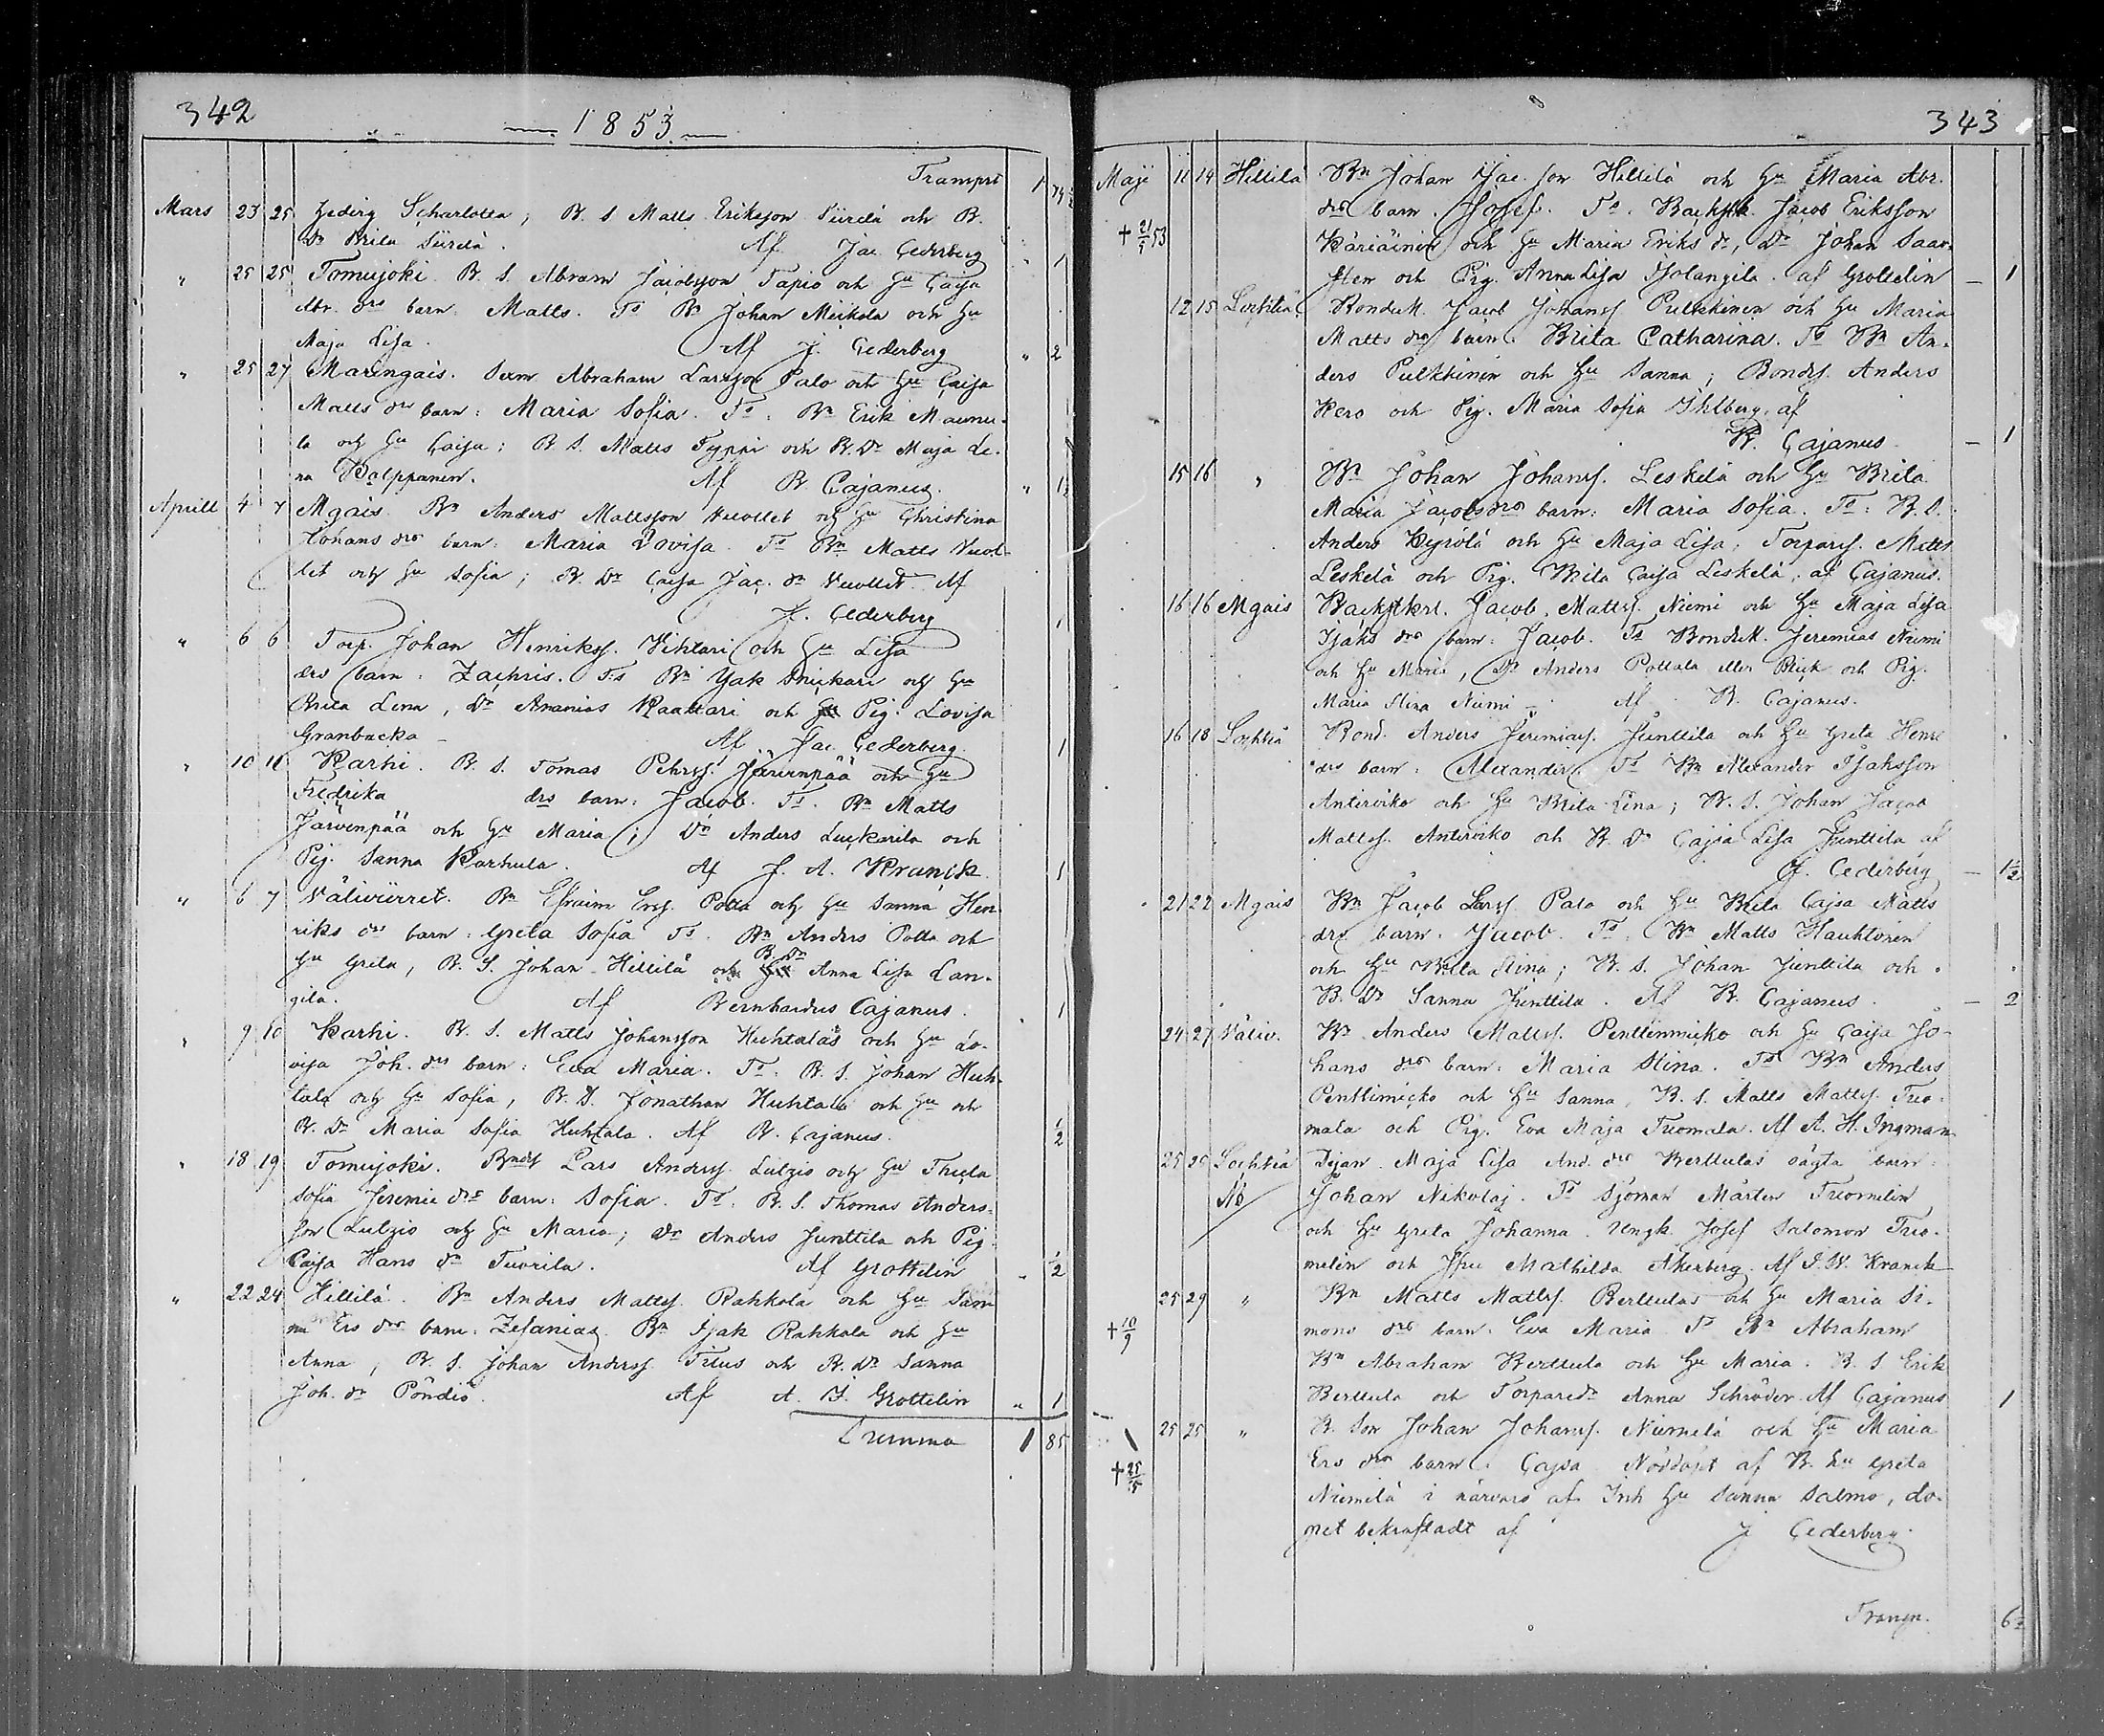 342
1853
Transport 1 74½
Mars 23 25 Hedvig Scharlotta; B. S Matts Eriksson Siirilä och B.
Dr Brita Siirilä. Af Jac. Cederberg 1
" 25 25 Tomujoki. B. S. Abram Jacobsson Tapio och Hu Caisa
Abr. drs barn. Matts. Ts Bn Johan Meikola och Hu
Maja Lisa. Af J. Cederberg " 2
" 25 27 Maringais. Abraham Larsson Palo och Hu Caisa
Matts drs barn: Maria Sofia. Ts: Bn Erik Maunu-
la och Hu Caisa; B. S. Matts Typpi och B. Dr Maja Le-
na Walppanen. Af B. Cajanus. " 1½
Aprill 4 7 Mgais. Bn Anders Mattsson Vuollet och Hu Christina
Johans drs barn: Maria Lovisa. Ts Bn Matts Vuol-
let och Hu Sofia; B. Dr Caisa Jac. dr Vuollet Af
J. Cederberg 1
" 6 6 Torp. Johan Henrikss. Vihtari och Hu Lisa
drs barn: Zachris. Ts Bn Isak Snickari och Hu
Brita Lena, Dr Ananias Raattari och Hu Pig. Lovisa
Granbacka Af Jac Cederberg 1
" 10 11 Karhi. B. S. Tomas Pehrss. Järvenpää och Hu
Fredrika drs barn: Jacob. Ts. Bn Matts
Järvenpää och Hu Maria; Dr Anders Luckarila och
Pig. Sanna Karhula. Af J. A. Kranck. 1
" 6 7 Välivirret. Bn Efraim Erss. Potta och Hu Sanna Hen-
riks drs barn: Greta Sofia Ts. Bn Anders Potta och
Hu Greta, B. S. Johan Hillilä och B. Dr Hu Anna Lisa Lan-
gila. Af Bernhardus Cajanus. 1
" 9 10 Karhi. B. S. Matts Johansson Huhtala och Hu Lo-
visa Joh. drs barn: Eva Maria. Ts. B. S. Johan Huh-
tala och Hu Sofia, B. S. Jonathan Huhtala och Hu och
B. Dr Maria Sofia Huhtala. Af B. Cajanus. ½
" 18 19 Tomujoki. Bondes Lars Anderss. Lutzio och Hu Thecla
Sofia Jeremie drs barn: Sofia. Ts. B. S. Thomas Anders-
son Lutzio och Hu Maria; Dr Anders Junttila och Pig
Caisa Hans dr Tuorila. Af Grottelin " ½
" 22 24 Hillilä. Bn Anders Mattss. Rahkola och Hu San-
na Ers drs barn. Zefanias. Bn Isak Rahkola och Hu
Anna; B. S. Johan Anderss Titus och B. Dr Sanna
Joh. dr Pöndiö. Af A. I. Grottelin " 1
Summa 1 85
343
Maji 11 14 Hillilä Bn Johan Jac. son Hillilä och Hu Maria Abr.
† 21/5 53 drs barn. Josef. Ts. Backstk. Jacob Eriksson
Käriäinen och Hu Maria Eriks dr, Dr Johan Saar-
sten och Pig. Anna Lisa Isolangila af Grottelin — 1
12 15 Lochteå Bondem. Jacob Johanss Pulkkinen och Hu Maria
Matts drs barn: Brita Catharina. Ts Bn An-
ders Pulkkinen och Hu Sanna; Bondes. Anders
Kero och Pig. Maria Sofia Ihlberg. af
B. Cajanus — 1
15 16 " Bn Johan Johanss. Leskelä och Hu Brita
Maria Jacobs drs barn: Maria Sofia. Ts: B. S.
Anders Kyrölä och Hu Maja Lisa, Torpares. Matts
Leskelä och Pig. Brita Caisa Leskelä, af Cajanus.
16 16 Mgais Backstkrl. Jacob Mattss. Niemi och Hu Maja Lisa
Isaks drs barn: Jacob. Ts Bondem. Jeremias Niemi
och Hu Maria, Dr Anders Pottala eller Blick och Pig.
Maria Stina Niemi — Af B. Cajanus.
16 18 Lochteå Bond. Anders Jeremiass. Junttila och Hu Greta Henr
drs barn: Alexander. Ts Bn Alexander Isaksson
Anteroiko och Hu Brita Lena; B. S. Johan Jacob
Mattss. Anteroiko och B. Dr Cajsa Lisa Junttila af
J. Cederberg — 1½
21 22 Mgais Bn Jacob Larss Palo och Hu Brita Cajsa Matts
drs barn. Jacob. Ts. Bn Matts Hauhtonen
och Hu Brita Stina; B. S. Johan Junttila och
B. Dr Sanna Junttila. Af B. Cajanus. — 2
24 27 Väliv. Bn Anders Mattss. Penttinmicko och Hu Caisa Jo-
hans drs barn: Maria Stina. Ts Bn Anders
Penttimicko och Hu Sanna, B. S. Matts Mattss. Tuo-
mala och Pig. Eva Maja Tuomala. Af A. H. Ingman
25 26 Lochteå Pejan. Maja Lisa And. drs Berttulas oägta barn
Johan Nikolaj. Ts Sjöman Mårten Tuomelin
och Hu Greta Johanna. Ungk. Josef Salomon Tuo-
melin och Mathilda Åkerberg. Af Kranck
25 29 " Bn Matts Mattss. Berttulas och Hu Maria Si-
† 10/9 mons drs barn. Eva Maria Ts Bn Abraham
Bn Abraham Berttula och Hu Maria. B. S Erik
Berttula och Torparedr Anna Schröder. Af Cajanus 1
25 25 " B. Son Johan Johanss. Niemelä och Hu Maria
† 25/5 Ers drs barn: Cajsa Nöddöpt af B. hu Greta
Niemelä i närvaro af Inh Hu Sanna Salmo, do-
pet bekraftadt af J Cederberg.
Transp. 6½